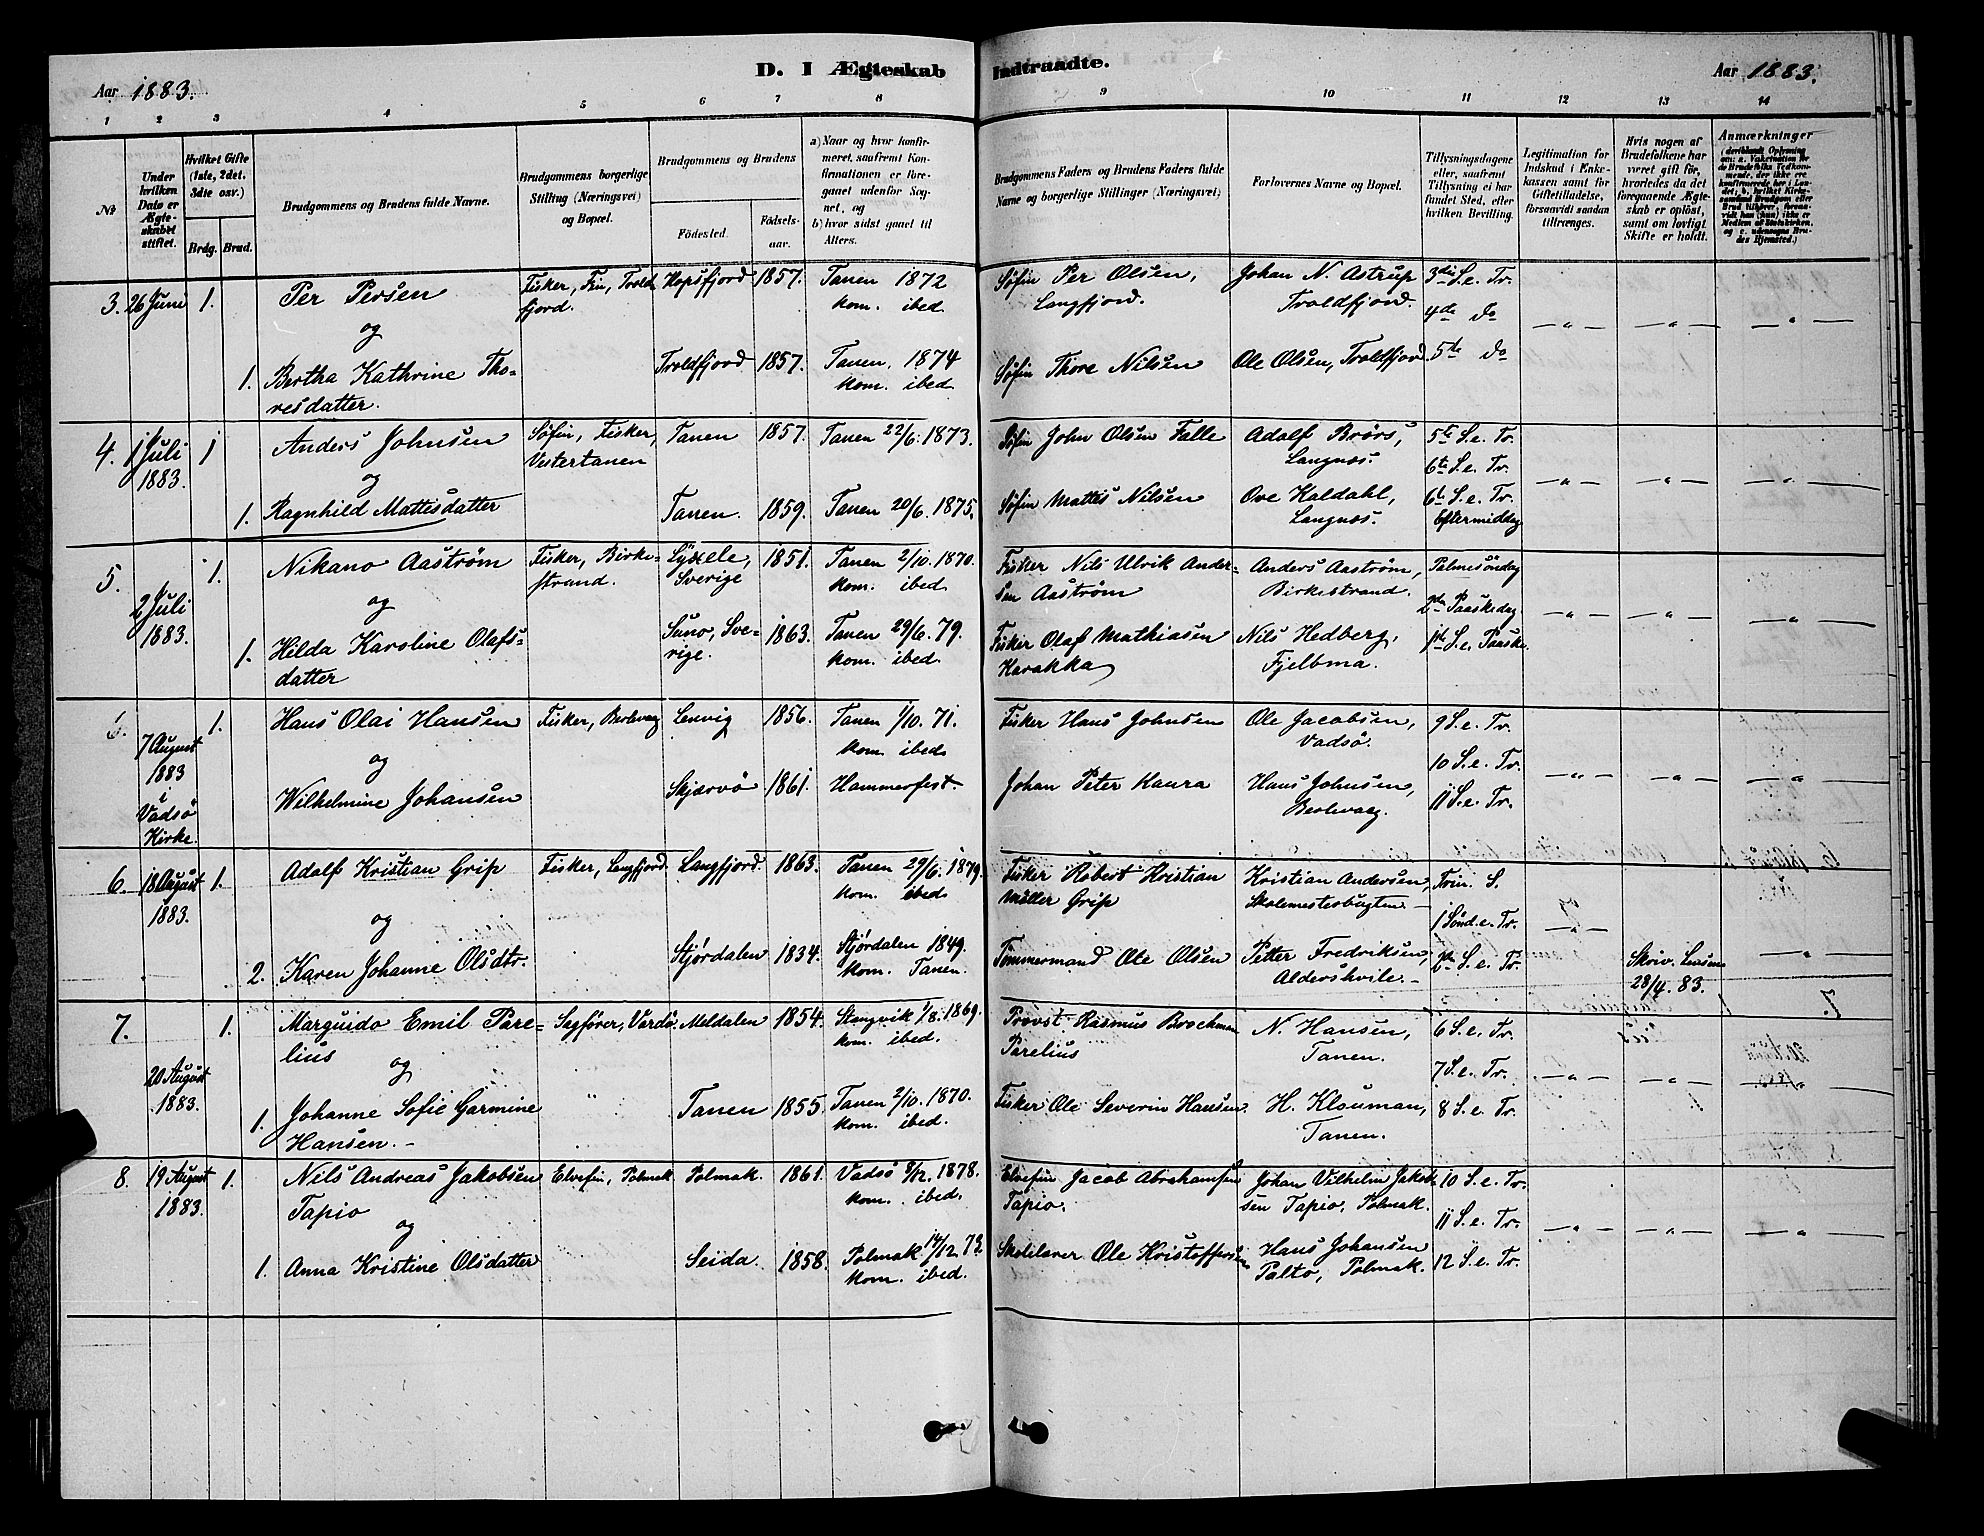 D. I Ægteskab Indtraadte.
Aar 1883.
Aar 1883.
1 2 3 4 5 6 7 8 9 10 11 12 13 14
№
Under hvilken Dato er Ægteskabet stiftet.
Hvilket Gifte (1ste, 2det, 3dte osv.)
Brdg. Brud.
Brudgommens og Brudens fulde Navne.
Brudgommens borgerlige Stilling (Næringsvei) og Bopæl.
Brudgommens og Brudens
Födested.
Födselsaar.
a) Naar og hvor konfirmeret, saafremt Konfirmationen er foregaaet udenfor Sognet, og
b) hvor sidst gaaet til Alters.
Brudgommens Faders og Brudens Faders fulde Navne og borgerlige Stillinger (Næringsvei)
Forlovernes Navne og Bopæl.
Tillysningsdagene eller, saafremt Tillysning ei har fundet Sted, efter hvilken Bevilling.
Legitimation for Indskud i Ænkekassen samt for Giftetilladelse, forsaavidt saadan tiltrænges.
Hvis nogen af Brudefolkene har været gift för, hvorledes da det foregaaende Ægteskab er oplöst, samt om lovligt Skifte er holdt.
Anmærkninger
3. 26 Juni 1. Per Persen Fisker, Fin, Troldfjord. Hopsfjord 1857. Tanen 1872 kom. ibed. Søfin Per Olsen, Langfjord. Johan N. Astrup Troldfjord. 3die S. e. Tr. 4de do
og
1. Bertha Kathrine Thoresdatter. Troldfjord 1857. Tanen, 1874 kom. ibed Søfin Thore Nilsen Ole Olsen, Troldfjord. 5te do
4. 1 Juli 1883. 1 Anders Johnsen Søfin, Fisker, Vestertanen Tanen 1857. Tanen 22/6. 1873. Søfin John Olsen Falle Adolf Brørs, Langnæs. 5te S. e. Tr. 6te S. e. Tr.
og
1. Ragnhild Mattisdatter Tanen. 1859. Tanen 20/6. 1875. Søfin Mattis Nilsen Ove Kaldahl, Langnæs. 6te S. e. Tr. Eftermiddag
5. 2 Juli 1883. 1. Nikano Aastrøm Fisker, Birkestrand. Lyxele, Sverige 1851. Tanen 2/10. 1870. kom. ibed Fisker Nils Ulrik Andersen Aastrøm Anders Aastrøm, Birkestrand. Palmesöndag 2den Paaskedag
og
1. Hilda Karoline Olafsdatter Suno, Sverige. 1863. Tanen 29/6. 79. kom. ibed. Fisker Olaf Mathiasen Karakka Nils Hedberg, Fjelbma. 1ste S. e. Paaske.
6. 7 August 1883 i Vadsö Kirke. 1. Hans Olai Hansen Fisker, Berlevaag Lenvig 1856. Tanen 1/10. 71. kom. ibed Fisker Hans Johnsen Ole Jacobsen, Vadsö. 9 S. e. Tr. 10 S. e. Tr.
og
Wilhelmine Johansen Skjærvö 1861. Hammerfest. Johan Peter Kaura Hans Johnsen, Berlevaag. 11 S. e. Tr.
6. 18 August 1883. 1. Adolf Kristian Grip Fisker, Langfjord. Langfjord. 1863. Tanen 29/6. 1879. kom. ibed Fisker Robert Kristian Möller Grip Kristian Andersen, Skolemesterbugten. Trin. S. 1 Sönd. e. Tr.
og
2. Karen Johanne Olsdtr. Stjørdalen 1834. Stjørdalen 1849. kom. Tanen. Tömmermand Ole Olsen Petter Fredriksen, Aldershvile. 2den S. e. Tr. 28/4. 83.
7. 20 August 1883. 1. Marguido Emil Parelius Sagfører, Vardö. Meldalen 1854. Stangvik 1/8. 1869. kom. ibed. Provst Rasmus Brochman Parelius N. Hansen, Tanen. 6 S. e. Tr. 7 S. e. Tr.
og
1. Johanne Sofie Garmine Hansen. Tanen 1855. Tanen 2/10. 1870. kom. ibed. Fisker Ole Severin Hansen. H. Klouman, Tanen. 8 S. e. Tr.
8. 19 August 1883. 1. Nils Andreas Jakobsen Tapio Elvefin, Polmak Polmak. 1861. Vadsö 8/12. 1878. kom. ibed. Elvefin Jacob Abrahamsen Tapio. Johan Vilhelm Jakobsen Tapio, Polmak. 10 S. e. Tr. 11 S. e. Tr.
og
1. Anna Kristine Olsdatter Seida. 1858. Polmak 14/12. 73. kom. ibed. Skolelærer Ole Kristoffersen Hans Johansen Palto, Polmak. 12 S. e. Tr.